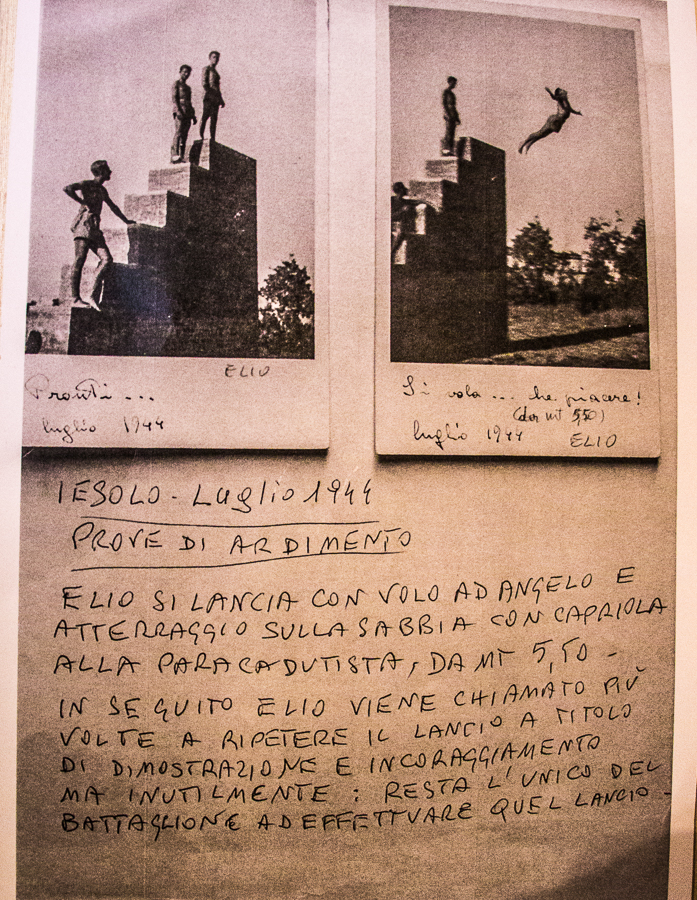 ELIO
Pronti...
luglio 1944
Si vola... che piacere!
(da mt 5,50)
luglio 1944 ELIO
IESOLO - Luglio 1944
PROVE DI ARDIMENTO
ELIO SI LANCIA CON VOLO AD ANGELO E
ATTERRAGGIO SULLA SABBIA CON CAPRIOLA
ALLA PARACADUTISTA, DA MT 5,50 -
IN SEGUITO ELIO VIENE CHIAMATO PIÙ
VOLTE A RIPETERE IL LANCIO A TITOLO
DI DIMOSTRAZIONE E INCORAGGIAMENTO
MA INUTILMENTE: RESTA L'UNICO DEL
BATTAGLIONE AD EFFETTUARE QUEL LANCIO -